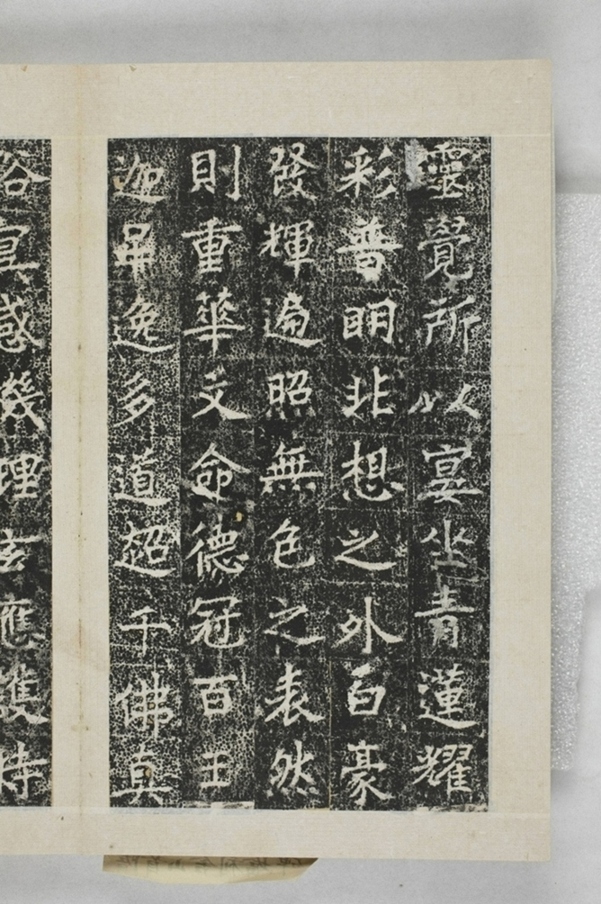 靈覺所以宴坐青蓮耀
彩普明非想之外白豪
發輝遍照無色之表然
則重華文命德冠百王
迦葉逸多道超千佛真
俗冥感幾理玄應隻時